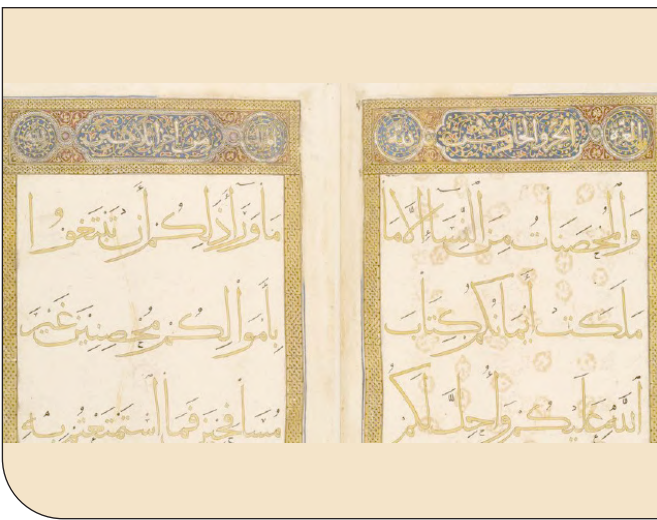 الجزو الخامس
وَالْمُحْصَنَاتُ مِنَ النِّسَاءِ إِلَّا مَا
مَلَكَتْ أَيْمَانُكُمْ كِتَابَ
اللَّهِ عَلَيْكُمْ وَأُحِلَّ لَكُمْ
من اجزا ثلاثين
مَا وَرَاءَ ذَلِكُمْ أَنْ تَبْتَغُوا
بِأَمْوَالِكُمْ مُحْصِنِينَ غَيْرَ
مُسَافِحِينَ فَمَا اسْتَمْتَعْتُمْ بِهِ